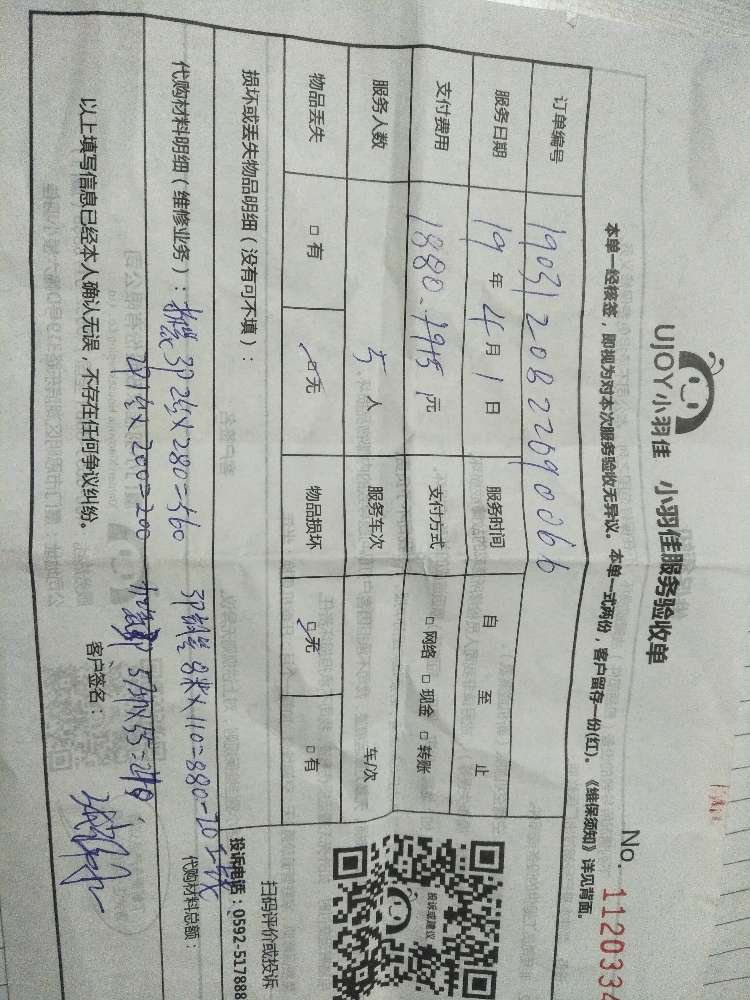 UJOY小羽佳 小羽佳服务验收单
No. 1120334
本单一经核签，即视为对本次服务验收无异议。本单一式两份，客户留存一份(红)。《维保须知》详见背面。
订单编号 1903120822690066
服务日期 19年4月1日 服务时间 自 至 止
支付费用 元 支付方式 □网络 □现金 □转账
服务人数 5人 服务车次 车/次
物品丢失 □有 □无 物品损坏 □无 □有
损坏或丢失物品明细（没有可不填）：
投诉或建议
扫码评价或投诉
投诉电话：0592-517888
代购材料明细（维修业务）： 3P 2台×280=560 8米×110=880-20
代购材料总额：
×200=200
以上填写信息已经本人确认无误，不存在任何争议纠纷。
客户签名：